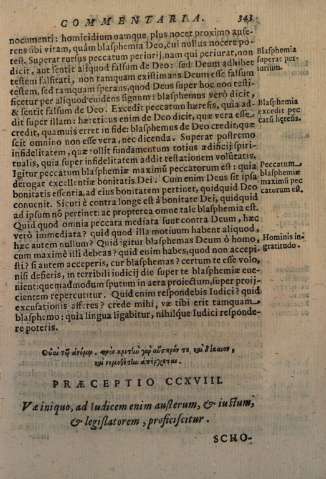 COMMENTARIA. 343
nocumenti: homicidium namque, plus nocet proximo aufe-
rens sibi vitam, quàm blasphemia Deo, cui nullus nocere po-
test. Superat rursus peccatum periurij, nam qui periurat, non
dicit, aut sentit aliquid falsum de Deo: sed Deum adhibet
testem falsitati, non tamquam existimans Deum esse falsum
testem, sed tamquam sperans, quod Deus super hoc non testi-
ficetur per aliquod euidens signum: blasphemus verò dicit,
& sentit falsum de Deo. Excedit peccatum hæresis, quia ad-
dit super illam: hæreticus enim de Deo dicit, quæ vera esse
credit, quamuis erret in fide: blasphemus de Deo credit, quæ
scit omnino non esse vera, nec dicenda. Superat postremo
infidelitatem, quæ ollit fundamentum totius ædificij spiri-
tualis, quia super infidelitatem addit testationem voluntatis.
Igitur peccatum blasphemiæ maximũ peccatorum est: quia
derogat excellentiæ bonitatis Dei: Cum enim Deus sit ipsa
bonitatis essentia, ad eius bonitatem pertinet, quidquid Deo
conuenit. Sicuti è contra longè est à bonitate Dei, quidquid
ad ipsum nõ pertinet: ac propterea omne tale blasphemia est.
Quid quod omnia peccata mediata sunt contra Deum, hæc
verò immediata? quid quod illa motiuum habent aliquod,
hæc autem nullum? Quid igitur blasphemas Deum ô homo,
cum maximè illi debeas? quid enim habes, quod non accepi-
sti? si autem acceperis, cur blasphemas? certum te esse volo,
nisi desieris, in terribili iudicij die super te blasphemiæ eue-
nient: quemadmodum sputum in aera proiectum, super proij-
cientem repercutitur. Quid enim respondebis Iudici? quid
excusationis afferes? crede mihi, væ tibi erit tamquam
blasphemo: quia lingua ligabitur, nihilque Iudici responde-
re poteris.
Blasphemia
superat per-
iurium.
Blasphemia
excedit pec-
catũ hæresis.
Peccatum
blasphemiæ
maximũ pec
catorum est.
Hominis in-
gratitudo.
PRÆCEPTIO CCXVIII.
Væ iniquo, ad Iudicem enim austerum, & iustum,
& legislatorem, proficiscitur.
SCHO-